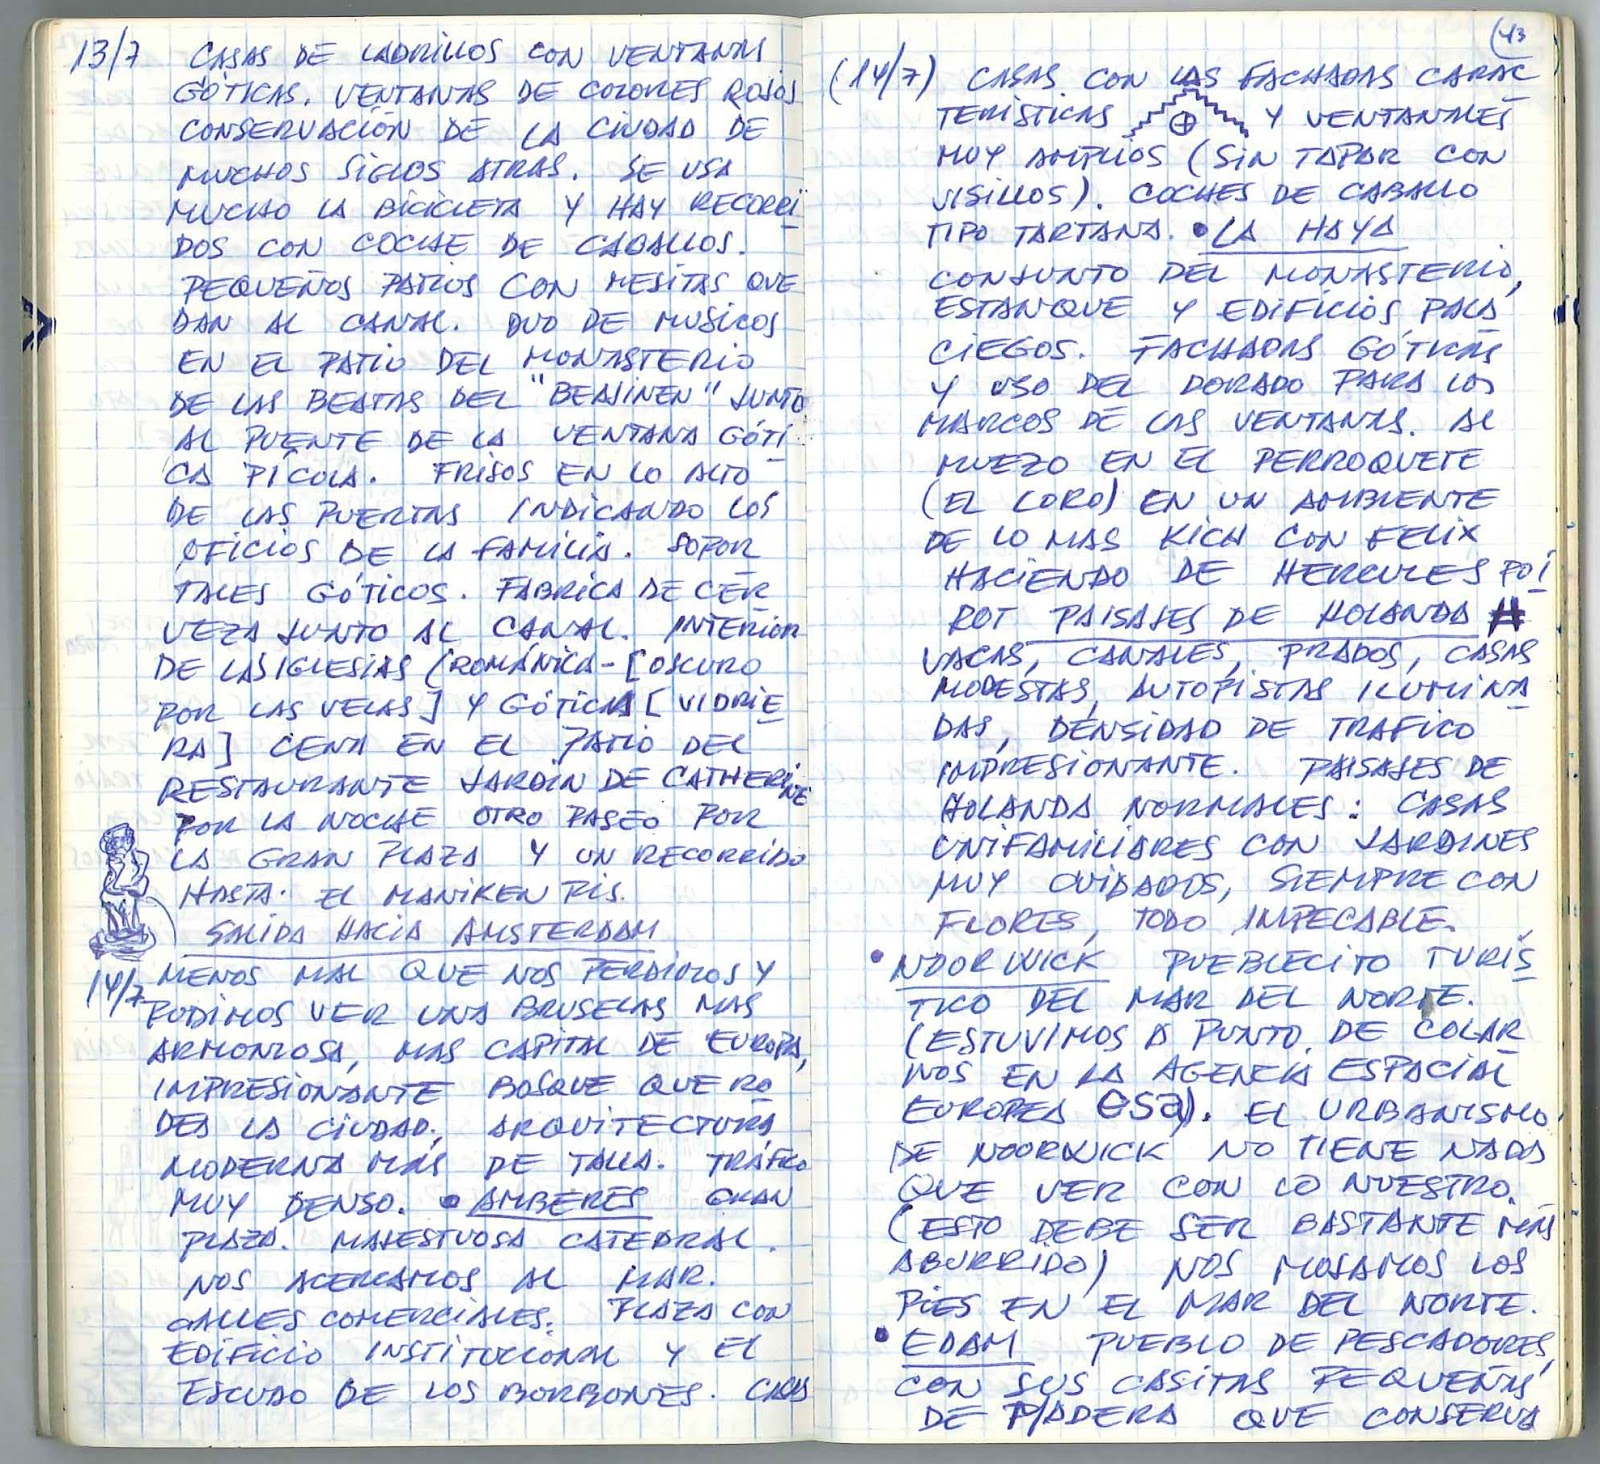 13/7 CASAS DE LADRILLOS CON VENTANAS
GÓTICAS. VENTANAS DE COLORES ROJOS
CONSERVACIÓN DE LA CIUDAD DE
MUCHOS SIGLOS ATRAS. SE USA
MUCHO LA BICICLETA Y HAY RECORRI
DOS CON COCHE DE CABALLOS.
PEQUEÑOS PATIOS CON MESITAS QUE
DAN AL CANAL. DUO DE MUSICOS
EN EL PATIO DEL MONASTERIO
DE LAS BEATAS DEL "BEAJINEN" JUNTO
AL PUENTE DE LA VENTANA GÓTI
CA PÍCOLA. FRISOS EN LO ALTO
DE LAS PUERTAS INDICANDO LOS
OFICIOS DE LA FAMILIA. SOPOR
TALES GÓTICOS. FABRICA DE CER
VEZA JUNTO AL CANAL. INTERIOR
DE LAS IGLESIAS (ROMÁNICA-[OSCURO
POR LAS VELAS] Y GÓTICA [VIDRIE
RA] CENA EN EL PATIO DEL
RESTAURANTE JARDIN DE CATHERINE
POR LA NOCHE OTRO PASEO POR
LA GRAN PLAZA Y UN RECORRIDO
HASTA EL MANIKEN PIS.
SALIDA HACIA AMSTERDAM
14/7 MENOS MAL QUE NOS PERDIMOS Y
PUDIMOS VER UNA BRUSELAS MAS
ARMONIOSA, MAS CAPITAL DE EUROPA,
IMPRESIONANTE BOSQUE QUE RO
DEA LA CIUDAD, ARQUITECTURA
MODERNA MÁS DE TALLA. TRÁFICO
MUY DENSO. • AMBERES GRAN
PLAZA. MAJESTUOSA CATEDRAL.
NOS ACERCAMOS AL MAR.
CALLES COMERCIALES. PLAZA CON
EDIFICIO INSTITUCIONAL Y EL
ESCUDO DE LOS BORBONES. CASAS
43
(14/7) CASAS CON LAS FACHADAS CARAC
TERÍSTICAS Y VENTANALES
MUY AMPLIOS (SIN TAPAR CON
VISILLOS). COCHES DE CABALLO
TIPO TARTANA. • LA HAYA
CONJUNTO DEL MONASTERIO,
ESTANQUE Y EDIFICIOS PALA
CIEGOS. FACHADAS GÓTICAS
Y USO DEL DORADO PARA LOS
MARCOS DE LAS VENTANAS. AL
MUEZO EN EL PERROQUETE
(EL LORO) EN UN AMBIENTE
DE LO MAS KICH CON FELIX
HACIENDO DE HERCULES POI
ROT PAISAJES DE HOLANDA #
VACAS, CANALES, PRADOS, CASAS
MODESTAS, AUTOPISTAS ILUMINA
DAS, DENSIDAD DE TRAFICO
IMPRESIONANTE. PAISAJES DE
HOLANDA NORMALES: CASAS
UNIFAMILIARES CON JARDINES
MUY CUIDADOS, SIEMPRE CON
FLORES, TODO IMPECABLE.
• NOORWICK PUEBLECITO TURIS
TICO DEL MAR DEL NORTE.
(ESTUVIMOS A PUNTO DE COLAR
NOS EN LA AGENCIA ESPACIAL
EUROPEA esa). EL URBANISMO
DE NOORWICK NO TIENE NADA
QUE VER CON LO NUESTRO.
(ESTO DEBE SER BASTANTE MÁS
ABURRIDO) NOS MOJAMOS LOS
PIES EN EL MAR DEL NORTE.
• EDAM PUEBLO DE PESCADORES,
CON SUS CASITAS PEQUEÑAS
DE MADERA QUE CONSERVA